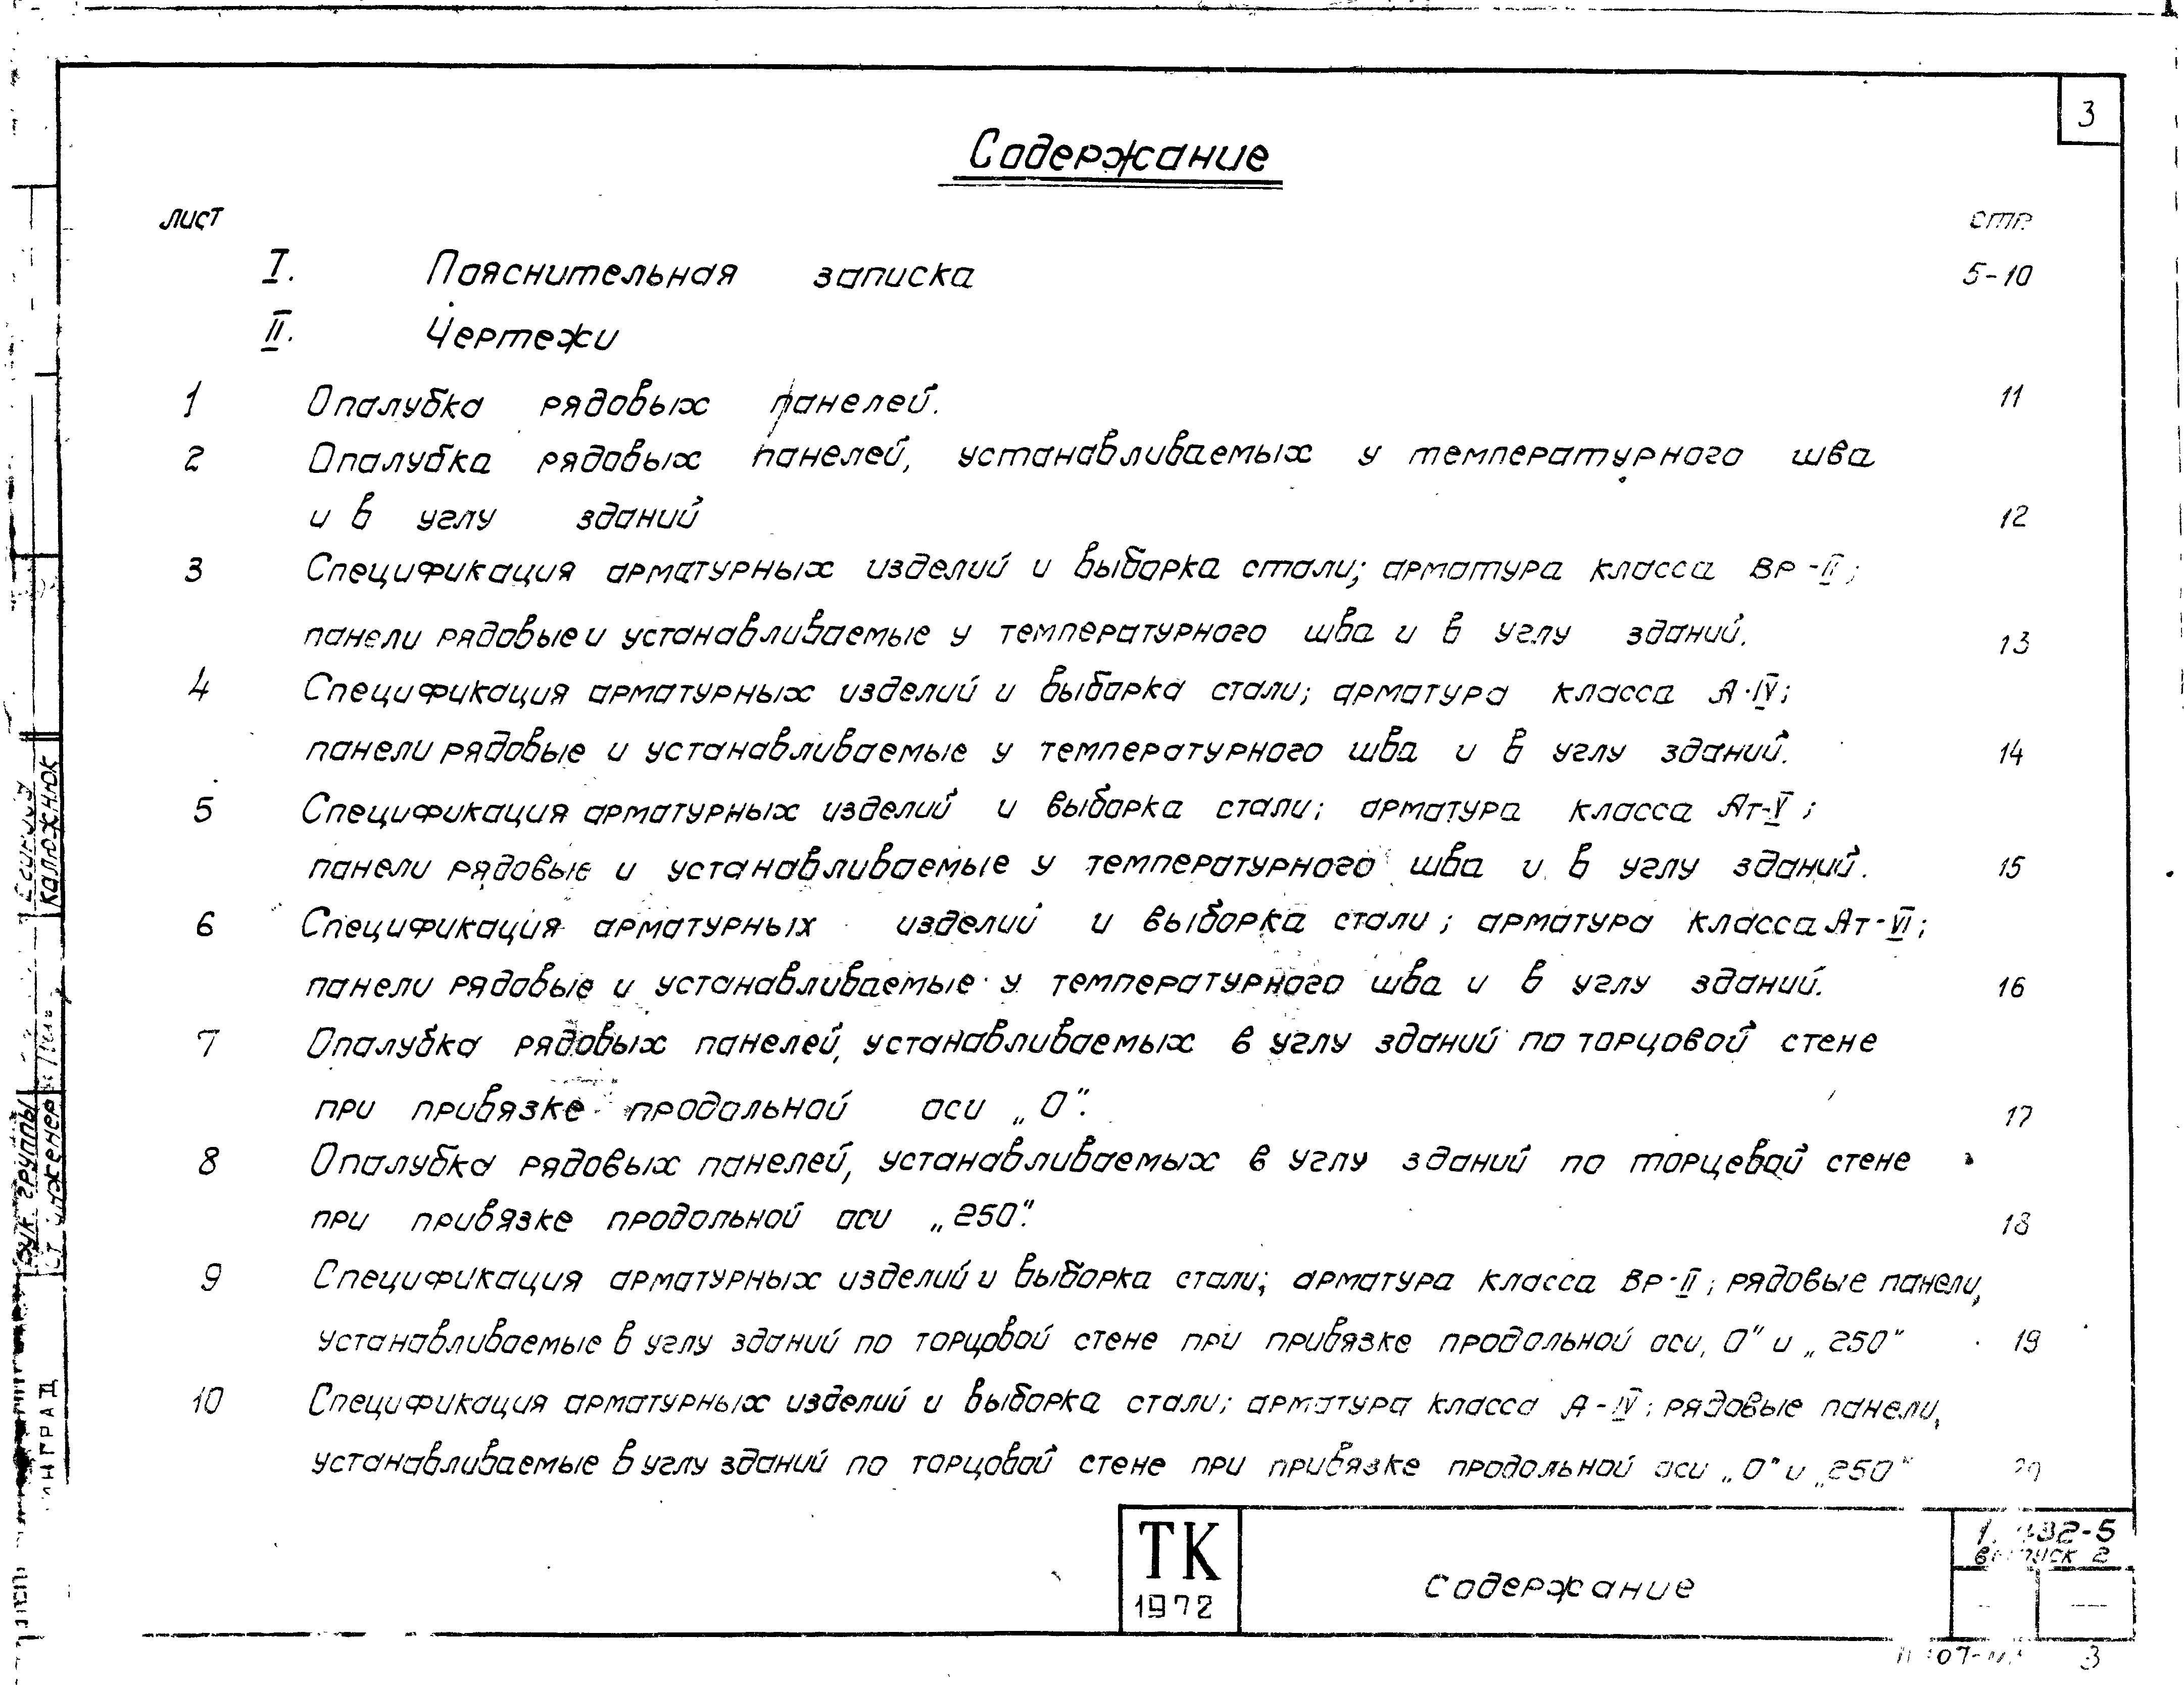 3
Содержание
лист стр.
I. Пояснительная записка 5-10
II. Чертежи
1 Опалубка рядовых панелей. 11
2 Опалубка рядовых панелей, устанавливаемых у температурного шва
и в углу зданий 12
3 Спецификация арматурных изделий и выборка стали; арматура класса Вр-II;
панели рядовые и устанавливаемые у температурного шва и в углу зданий. 13
4 Спецификация арматурных изделий и выборка стали; арматура класса А-IV;
панели рядовые и устанавливаемые у температурного шва и в углу зданий. 14
5 Спецификация арматурных изделий и выборка стали; арматура класса Ат-V;
панели рядовые и устанавливаемые у температурного шва и в углу зданий. 15
6 Спецификация арматурных изделий и выборка стали; арматура класса Ат-VI;
панели рядовые и устанавливаемые у температурного шва и в углу зданий. 16
7 Опалубка рядовых панелей, устанавливаемых в углу зданий по торцовой стене
при привязке продольной оси „0". 17
8 Опалубка рядовых панелей, устанавливаемых в углу зданий по торцевой стене
при привязке продольной оси „250". 18
9 Спецификация арматурных изделий и выборка стали; арматура класса Вр-II; рядовые панели,
устанавливаемые в углу зданий по торцовой стене при привязке продольной оси „0" и „250" 19
10 Спецификация арматурных изделий и выборка стали; арматура класса А-IV; рядовые панели,
устанавливаемые в углу зданий по торцовой стене при привязке продольной оси „0" и „250" 20
ТК
1972
Содержание
выпуск 2
3
Калюжнюк
Рук. группы
Ст. инженер